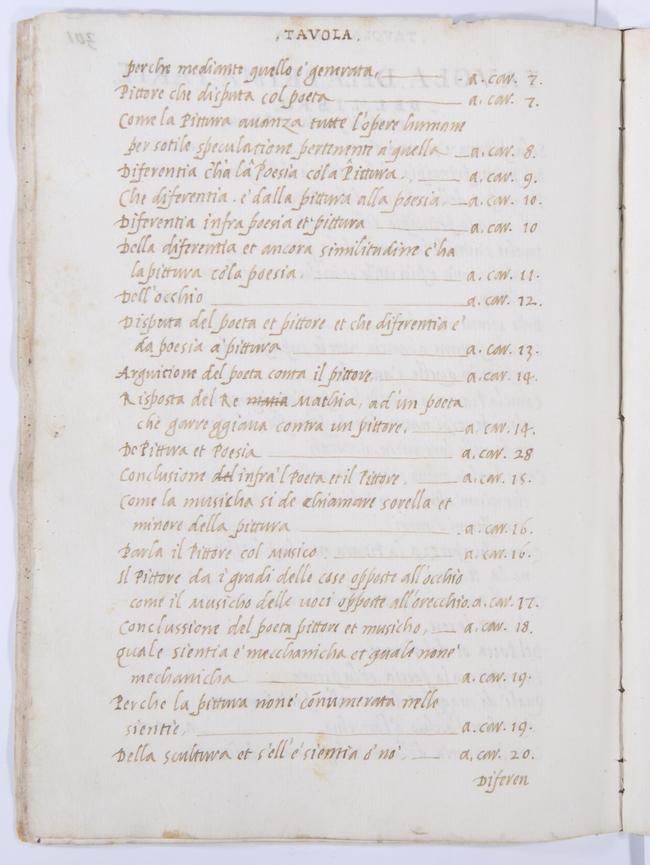 .TAVOLA.
perche mediante quello è generata, a. car. 7.
Pittore che disputa col poeta a. car. 7.
Come la Pittura auanza tutte l'opere humane
per sotile speculatione pertenente a quella a. car. 8.
Diferentia c'hà la Poesia cõla Pittura. a. car. 9.
Che diferentia. è dalla pittura alla poesia. a. car. 10.
Diferentia infra poesia et pittura a. car. 10
Della diferentia et ancora similitudine c'ha
la pittura cõla poesia. a. car. 11.
Dell'occhio a. car. 12.
Disputa del poeta et pittore et che diferentia e'
da poesia a' pittura a. car. 13.
Arguitione del poeta conta il pittore a. car. 14.
Risposta del Re Mathia, ad un poeta
che garreggiaua contra un pittore. a. car. 14.
De Pittura et Poesia a. car. 28
Conclusione del infra'l Poeta et il Pittore. a. car. 15.
Come la musicha si de chiamare sorella et
minore della pittura a. car. 16.
Parla il Pittore col Musico a. car. 16.
Il Pittore da i gradi delle cose opposte all'occhio
come il Musicho delle uoci opposte all'orecchio. a. car. 17.
Conclussione del poeta pittore et musicho, a. car. 18.
quale sientia e' mecchanicha et quale none'
mechanicha a. car. 19.
Perche la pittura none' cõnumerata nelle
sientie, a. car. 19.
Della scultura et s'ell'e' sientia o' no' a. car. 20.
Diferen